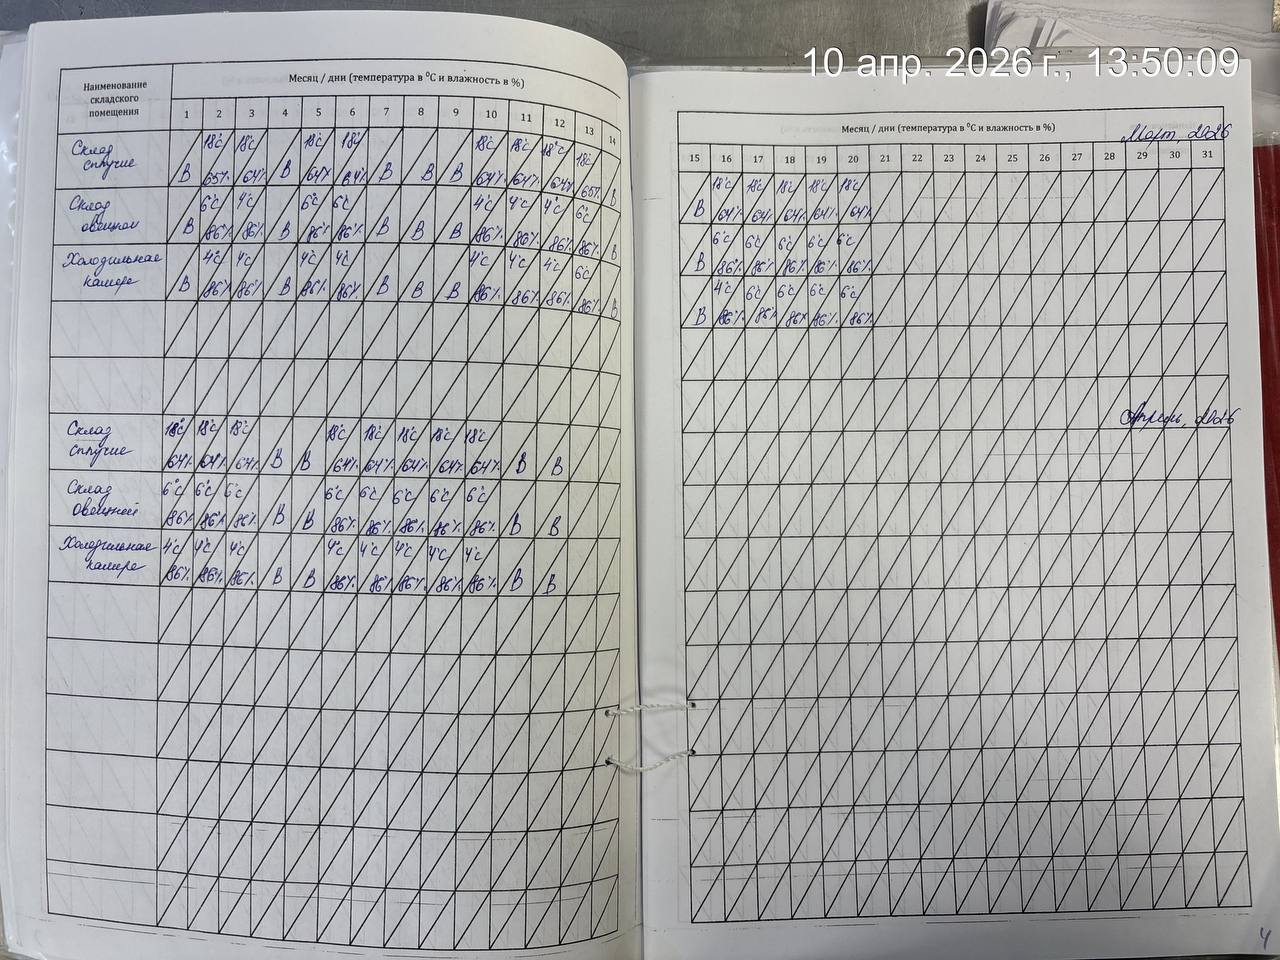 10 апр. 2026 г., 13:50:09
Наименование складского помещения
Месяц / дни (температура в ⁰С и влажность в %)
1 2 3 4 5 6 7 8 9 10 11 12 13 14
Склад сыпучие
18°с 18°с 18°с 18°с 18°с 18°с 18°с 18°с
В 65% 64% В 64% 64% В В В 64% 64% 64% 65% В
Склад овощной
6°с 4°с 6°с 6°с 4°с 4°с 4°с 6°с
В 86% 86% В 86% 86% В В В 86% 86% 86% 86% В
Холодильная камера
4°с 4°с 4°с 4°с 4°с 4°с 4°с 6°с
В 86% 86% В 86% 86% В В В 86% 86% 86% 86% В
Склад сыпучие
18°с 18°с 18°с 18°с 18°с 18°с 18°с 18°с
64% 64% 64% В В 64% 64% 64% 64% 64% В В
Склад овощной
6°с 6°с 6°с 6°с 6°с 6°с 6°с 6°с
86% 86% 86% В В 86% 86% 86% 86% 86% В В
Холодильная камера
4°с 4°с 4°с 4°с 4°с 4°с 4°с 4°с
86% 86% 86% В В 86% 86% 86% 86% 86% В В
Месяц / дни (температура в ⁰С и влажность в %)
Март 2026
15 16 17 18 19 20 21 22 23 24 25 26 27 28 29 30 31
18°с 18°с 18°с 18°с 18°с
В 64% 64% 64% 64% 64%
6°с 6°с 6°с 6°с 6°с
В 86% 86% 86% 86% 86%
4°с 6°с 6°с 6°с 6°с
В 86% 86% 86% 86% 86%
Апрель, 2026
4